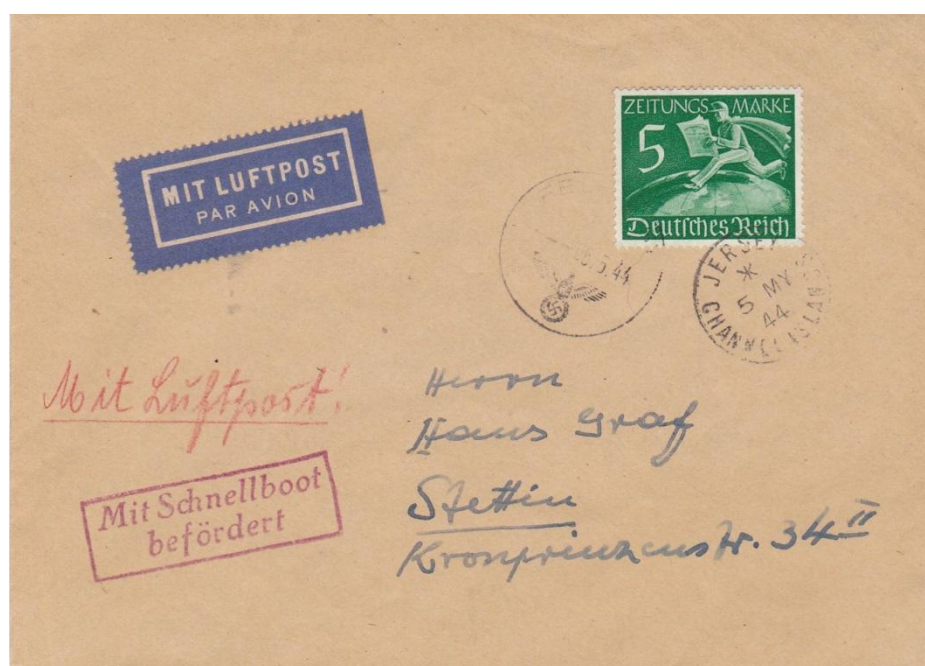 MIT LUFTPOST
PAR AVION
ZEITUNGS MARKE
5
Deutsches Reich
5.44
JERSEY
5 MY
44
CHANNEL ISLANDS
Mit Luftpost!
Mit Schnellboot
befördert
Herrn
Hans Graf
Stettin
Kronprinzenstr. 34 II